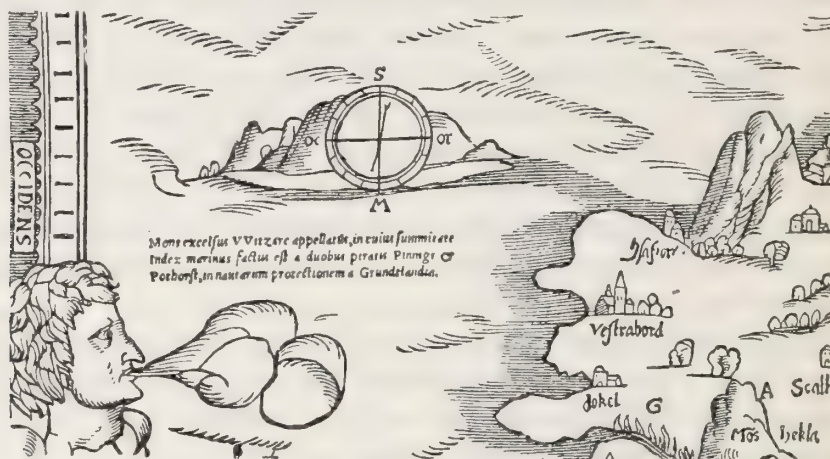 S
oc or
M
OCCIDENS
Mons excelsus VVitzarc appellatus, in cuius summitate
Index marinus factus est a duobus piratis Pininge &
Pothorst, in nautarum protectionem a Grundtlandia.
Vestrabord
Jokel
G
A Scalh
Mos hekla